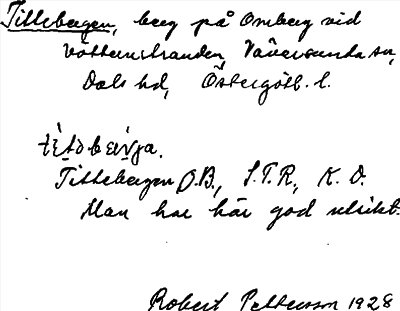 Titteberg­en, berg på Omberg vid
Vätternstranden, Väversunda sn,
Dals hd, Östergötl. l.
Titteberg­en O.B., S.T.R., K.D.
Man har här god utsikt.
Robert Pettersson 1928